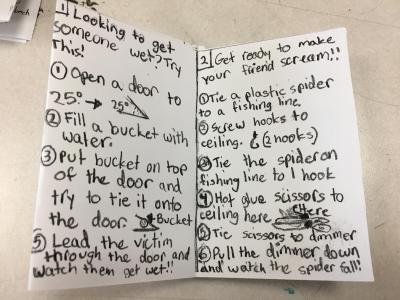 1 Looking to get
someone wet? Try
this!
① Open a door to
25.° → 25°
② Fill a bucket with
water.
③ Put bucket on top
of the door and
try to tie it onto
the door. Bucket
⑤ Lead the victim
through the door and
watch them get wet!!
2 Get ready to make
your friend scream!!
① Tie a plastic spider
to a fishing line.
② Screw hooks to
ceiling. (2 hooks)
③ Tie the spider on
fishing line to 1 hook
④ Hot glue scissors to
ceiling here Here
⑤ Tie scissors to dimmer
⑥ Pull the dimmer down
and watch the spider fall!